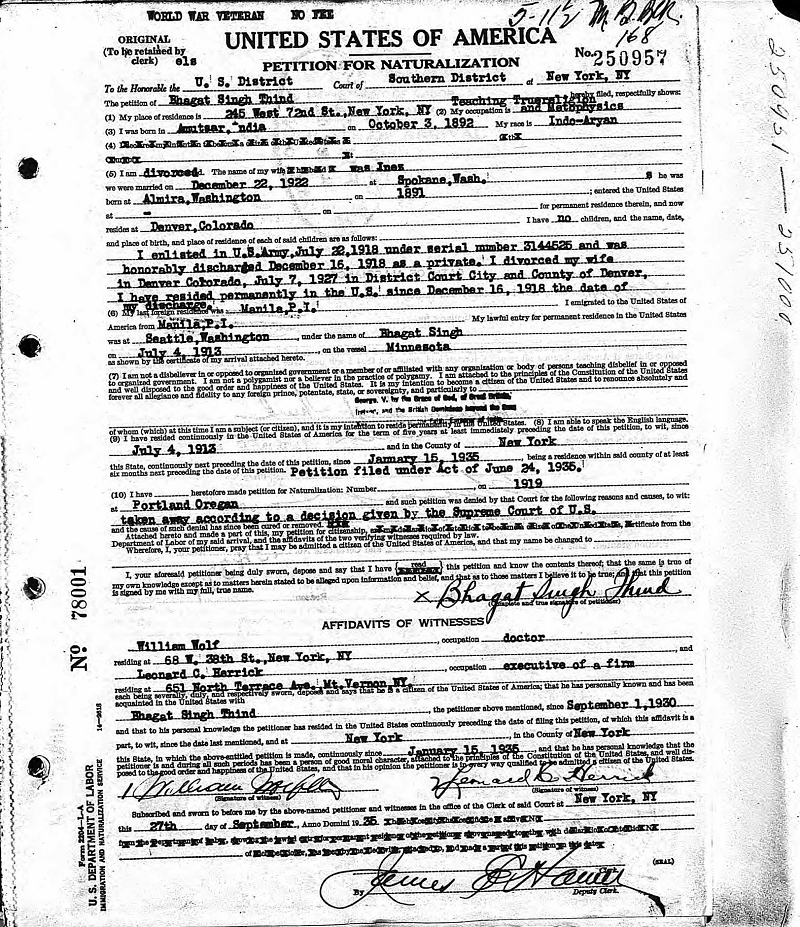 WORLD WAR VETERAN NO FEE
ORIGINAL
(To be retained by
clerk) els
168
UNITED STATES OF AMERICA
PETITION FOR NATURALIZATION
No. 250957
To the Honorable the U. S. District Court of Southern District at New York, NY
The petition of Bhagat Singh Thind hereby filed, respectfully shows:
(1) My place of residence is 245 West 72nd St., New York, NY (2) My occupation is Teaching Truereligion and Metaphysics
(3) I was born in Amutsar, ndia on October 3, 1892 My race is Indo-Aryan
(4)
(5) I am divorced. The name of my wife was Inez
we were married on December 22, 1922 at Spokane, Wash. s he was
born at Almira, Washington on 1891 ; entered the United States
at - on for permanent residence therein, and now
resides at Denver, Colorado I have no children, and the name, date,
and place of birth, and place of residence of each of said children are as follows:
I enlisted in U.S.Army, July 22, 1918 under serial number 3144525 and was
honorably discharged December 16, 1918 as a private. I divorced my wife
in Denver Colorado, July 7, 1927 in District Court City and County of Denver,
I have resided permanently in the U.S. since December 16, 1918 the date of
my discharge.
(6) My last foreign residence was Manila, P.I. I emigrated to the United States of
America from Manila, P.I. My lawful entry for permanent residence in the United States
was at Seattle, Washington, under the name of Bhagat Singh
on July 4, 1913, on the vessel Minnesota
as shown by the certificate of my arrival attached hereto.
(7) I am not a disbeliever in or opposed to organized government or a member of or affiliated with any organization or body of persons teaching disbelief in or opposed
to organized government. I am not a polygamist nor a believer in the practice of polygamy. I am attached to the principles of the Constitution of the United States,
and well disposed to the good order and happiness of the United States. It is my intention to become a citizen of the United States and to renounce absolutely and
forever all allegiance and fidelity to any foreign prince, potentate, state, or sovereignty, and particularly to
George V, by the Grace of God, of Great Britain,
Ireland, and the British Dominions beyond the Seas
of whom (which) at this time I am a subject (or citizen), and it is my intention to reside permanently in the United States. (8) I am able to speak the English language.
(9) I have resided continuously in the United States of America for the term of five years at least immediately preceding the date of this petition, to wit, since
July 4, 1913 and in the County of New York
this State, continuously next preceding the date of this petition, since January 15, 1935, being a residence within said county of at least
six months next preceding the date of this petition. Petition filed under Act of June 24, 1935.
(10) I have heretofore made petition for Naturalization: Number, on 1919
at Portland Oregan and such petition was denied by that Court for the following reasons and causes, to wit:
taken away according to a decision given by the Supreme Court of U.S.
and the cause of such denial has since been cured or removed.
Attached hereto and made a part of this, my petition for citizenship, certificate from the
Department of Labor of my said arrival, and the affidavits of the two verifying witnesses required by law.
Wherefore, I, your petitioner, pray that I may be admitted a citizen of the United States of America, and that my name be changed to
I, your aforesaid petitioner being duly sworn, depose and say that I have read this petition and know the contents thereof; that the same is true of
my own knowledge except as to matters herein stated to be alleged upon information and belief, and that as to those matters I believe it to be true; and that this petition
is signed by me with my full, true name.
× Bhagat Singh Thind
(Complete and true signature of petitioner)
AFFIDAVITS OF WITNESSES
William Wolf, occupation doctor
residing at 68 W. 38th St., New York, NY, and
Leonard C. Herrick, occupation executive of a firm
residing at 651 North Terrace Ave., Mt. Vernon, NY.
each being severally, duly, and respectively sworn, deposes and says that he is a citizen of the United States of America; that he has personally known and has been
acquainted in the United States with
Bhagat Singh Thind, the petitioner above mentioned, since September 1, 1930
and that to his personal knowledge the petitioner has resided in the United States continuously preceding the date of filing this petition, of which this affidavit is a
part, to wit, since the date last mentioned, and at New York, in the County of New York
this State, in which the above-entitled petition is made, continuously since January 15, 1935, and that he has personal knowledge that the
petitioner is and during all such periods has been a person of good moral character, attached to the principles of the Constitution of the United States, and well disposed
to the good order and happiness of the United States, and that in his opinion the petitioner is in every way qualified to be admitted a citizen of the United States.
(Signature of witness)
Leonard C. Herrick
(Signature of witness)
Subscribed and sworn to before me by the above-named petitioner and witnesses in the office of the Clerk of said Court at New York, NY
this 27th day of September, Anno Domini 19 35.
(SEAL)
By
Deputy Clerk.
No 78001
14-2618
Form 2204-L-A
U. S. DEPARTMENT OF LABOR
IMMIGRATION AND NATURALIZATION SERVICE
250951 - 251000